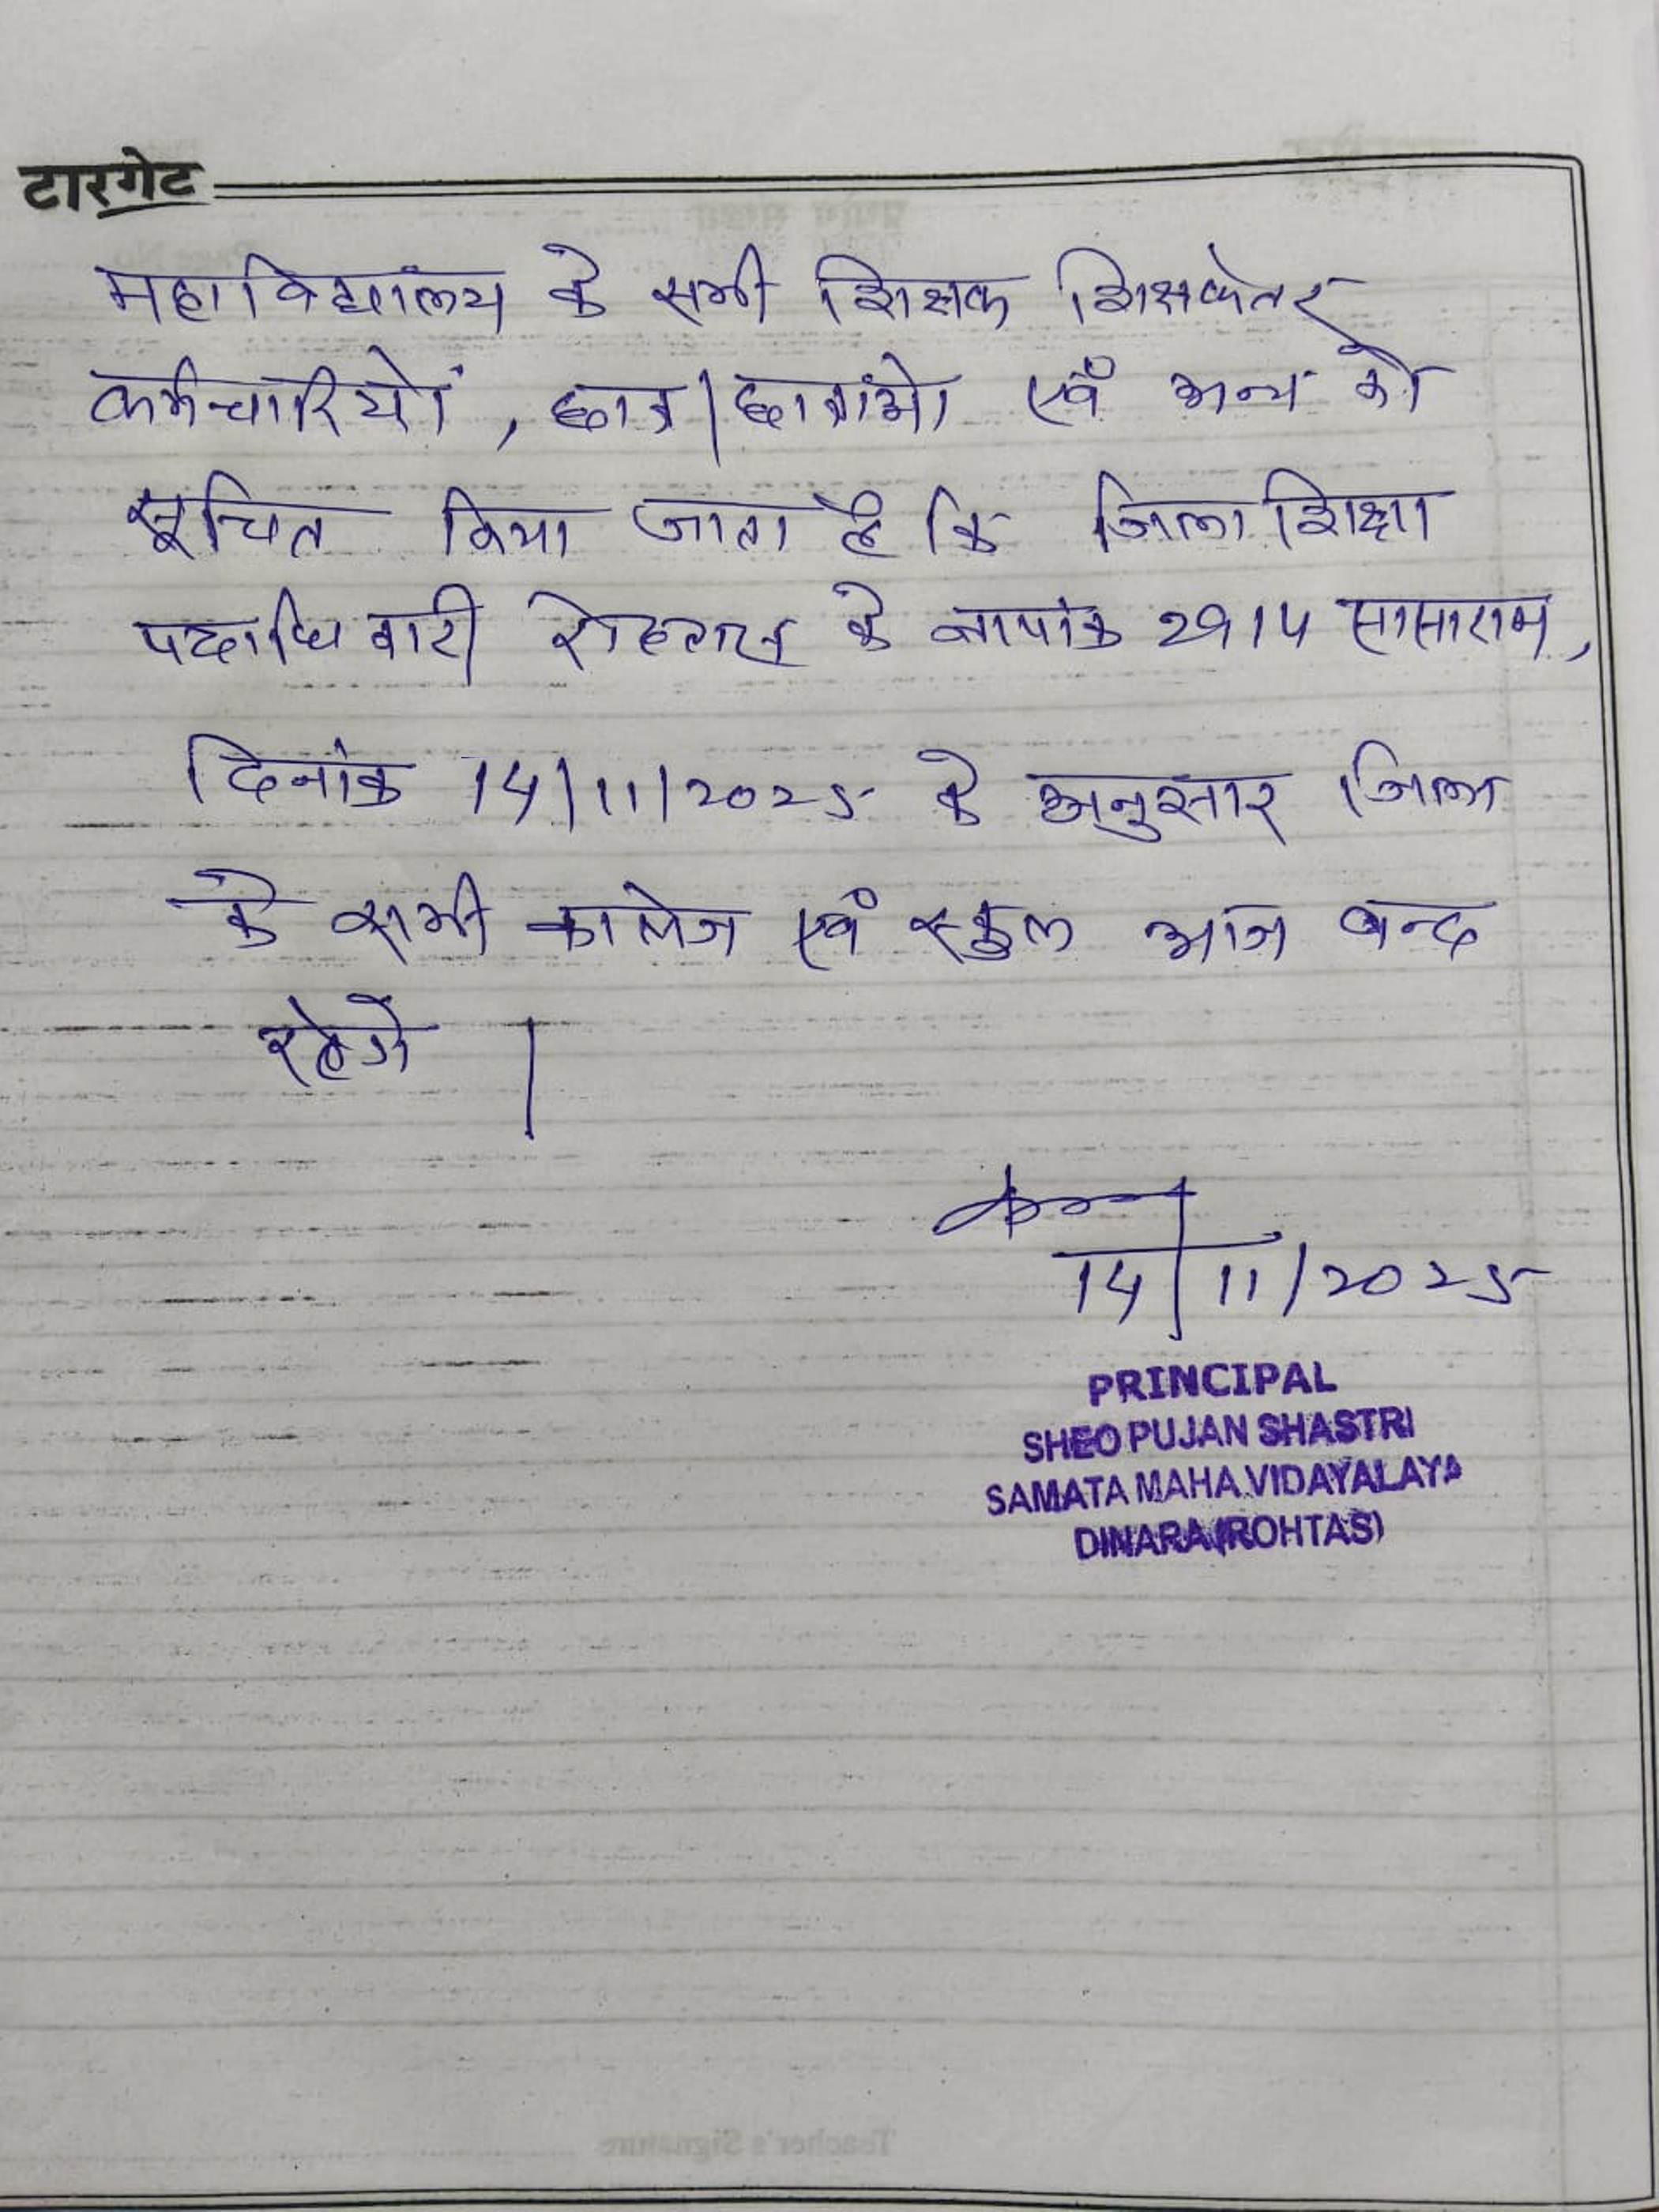 टारगेट
महाविद्यालय के सभी शिक्षक शिक्षकेतर
कर्मचारियों, छात्र/छात्राओं एवं अन्य को
सूचित किया जाता है कि जिला शिक्षा
पदाधिकारी रोहतास के ज्ञापांक 2914 सासाराम,
दिनांक 14/11/2025 के अनुसार जिला
के सभी कालेज एवं स्कुल आज बन्द
रहेगे |
14/11/2025
PRINCIPAL
SHEO PUJAN SHASTRI
SAMATA MAHA.VIDAYALAYA
DINARA (ROHTAS)
Teacher's Signature